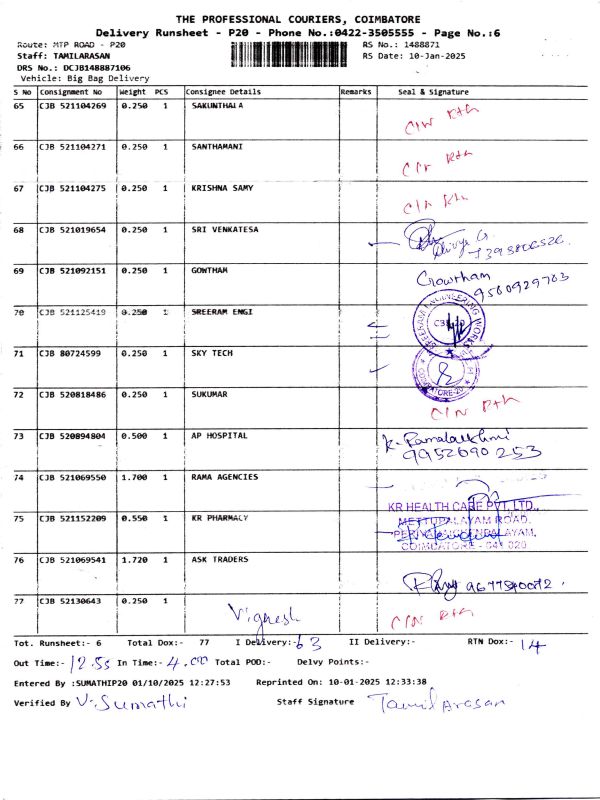 THE PROFESSIONAL COURIERS, COIMBATORE
Delivery Runsheet - P20 - Phone No.:0422-3505555 - Page No.:6
Route: MTP ROAD - P20 RS No.: 1488871
Staff: TAMILARASAN RS Date: 10-Jan-2025
DRS No.: DCJB148887106
Vehicle: Big Bag Delivery
S No Consignment No Weight PCS Consignee Details Remarks Seal & Signature
65 CJB 521104269 0.250 1 SAKUNTHALA
66 CJB 521104271 0.250 1 SANTHAMANI
67 CJB 521104275 0.250 1 KRISHNA SAMY
68 CJB 521019654 0.250 1 SRI VENKATESA
69 CJB 521092151 0.250 1 GOWTHAM Gowtham
9500929703
70 CJB 521125419 0.250 1 SREERAM ENGI
71 CJB 80724599 0.250 1 SKY TECH
72 CJB 520818486 0.250 1 SUKUMAR
73 CJB 520894804 0.500 1 AP HOSPITAL K. Ramalakhmi
9952690253
74 CJB 521069550 1.700 1 RAMA AGENCIES
KR HEALTH CARE PVT. LTD.,
75 CJB 521152209 0.550 1 KR PHARMACY METTUPALAYAM ROAD,
PERIYANAICKENPALAYAM,
COIMBATORE - 641 020
76 CJB 521069541 1.720 1 ASK TRADERS
77 CJB 52130643 0.250 1 Vignesh
Tot. Runsheet:- 6 Total Dox:- 77 I Delivery:- 63 II Delivery:- RTN Dox:- 14
Out Time:- 12.55 In Time:- 4.00 Total POD:- Delvy Points:-
Entered By :SUMATHIP20 01/10/2025 12:27:53 Reprinted On: 10-01-2025 12:33:38
Verified By V. Sumathi Staff Signature Tamil Arasan